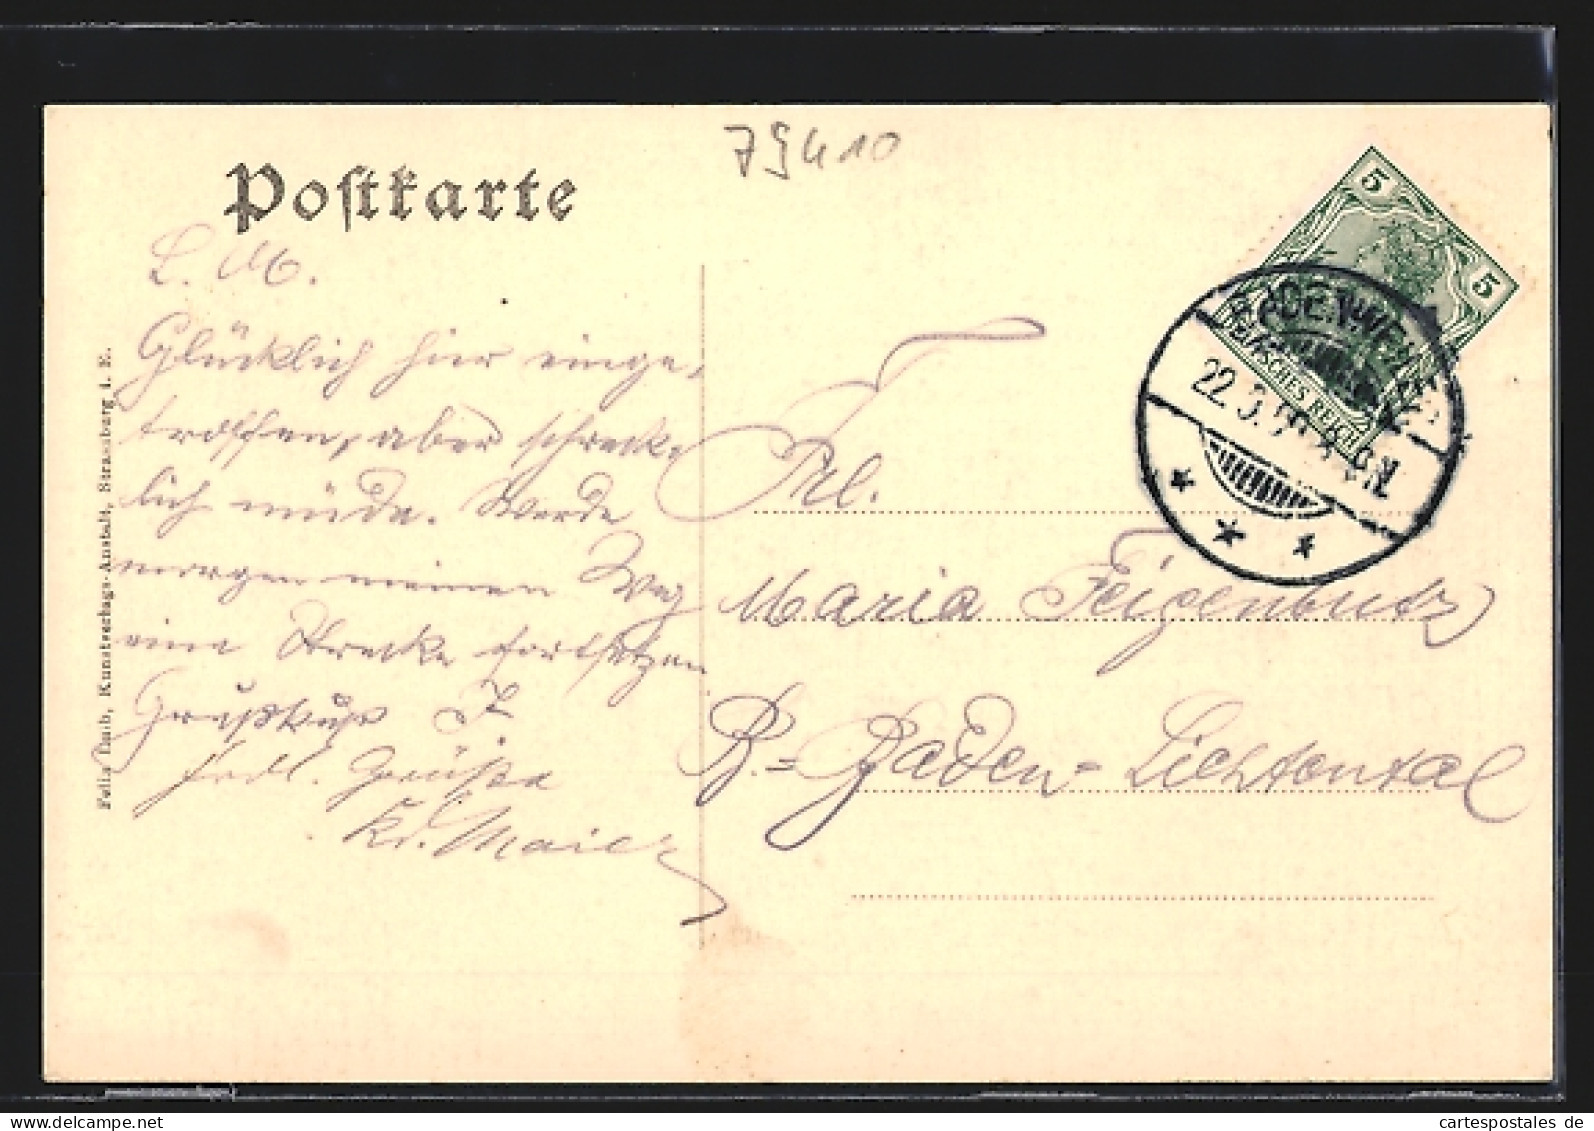 79410
Postkarte
L. M.
Glücklich hier einge-
troffen, aber schreck-
lich müde. Werde
morgen meinen Weg
eine Strecke fortsetzen
Gruß Kuß
frdl. Grüße
Kr. Maier
Frl.
Maria Feigenbutz
B.= Baden-Lichtental
BADENWEILER
22.3.
N.
5
5
DEUTSCHES REICH
Felix Luib, Kunstverlags-Anstalt, Strassburg i. E.
cartespostales de